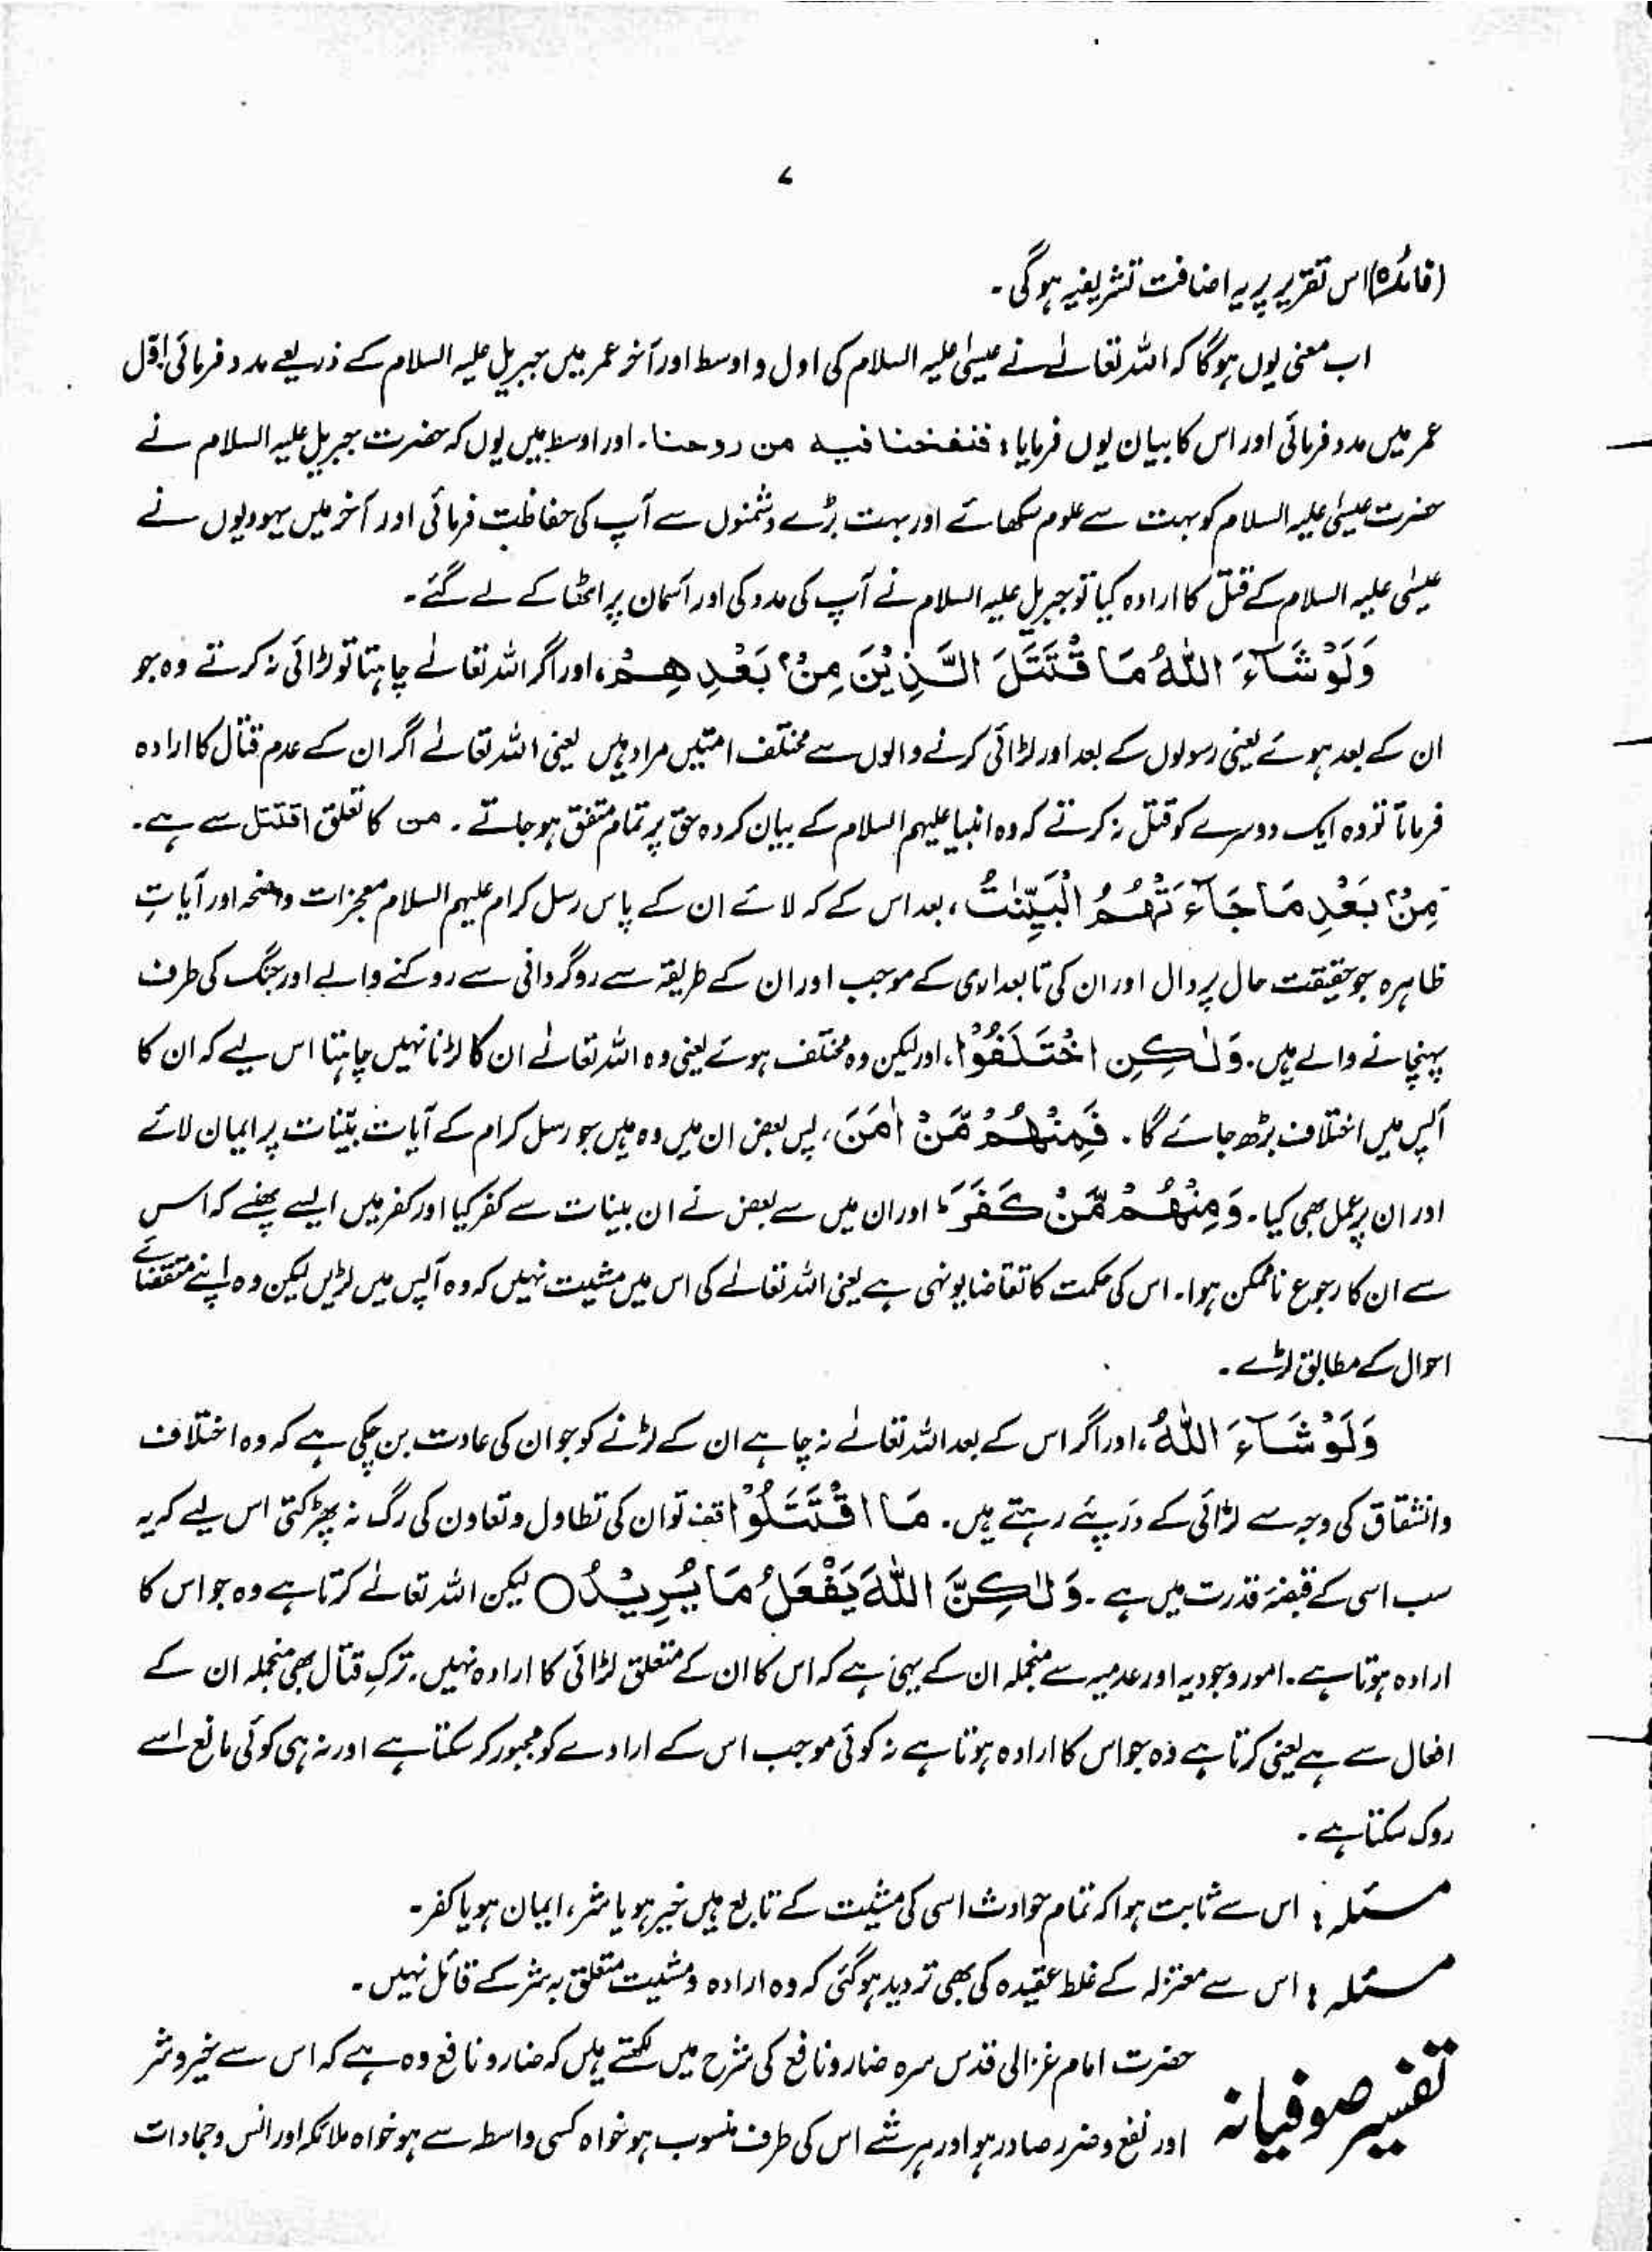 ۷
(فائدہ) اس تقریر پر یہ اضافت تشریفیہ ہوگی۔
اب معنی یوں ہوگا کہ اللہ تعالےٰ نے عیسیٰ علیہ السلام کی اول و اوسط اور آخر عمر میں جبریل علیہ السلام کے ذریعے مدد فرمائی اوّل
عمر میں مدد فرمائی اور اس کا بیان یوں فرمایا؛ فنفخنا فیہ من روحنا۔ اور اوسط میں یوں کہ حضرت جبریل علیہ السلام نے
حضرت عیسیٰ علیہ السلام کو بہت سے علوم سکھائے اور بہت بڑے دشمنوں سے آپ کی حفاظت فرمائی اور آخر میں یہودیوں نے
عیسٰی علیہ السلام کے قتل کا ارادہ کیا تو جبریل علیہ السلام نے آپ کی مدد کی اور آسمان پر اٹھا کے لے گئے۔
وَلَوْ شَآءَ اللّٰهُ مَا قْتَتَلَ الَّذِيْنَ مِنْۢ بَعْدِهِمْ، اور اگر اللہ تعالےٰ چاہتا تو لڑائی نہ کرتے وہ جو
ان کے بعد ہوئے یعنی رسولوں کے بعد اور لڑائی کرنے والوں سے مختلف امتیں مراد ہیں یعنی اللہ تعالےٰ اگر ان کے عدم قتال کا ارادہ
فرماتا تو وہ ایک دوسرے کو قتل نہ کرتے کہ وہ انبیا علیہم السلام کے بیان کردہ حق پر تمام متفق ہو جاتے۔ من کا تعلق اقتتل سے ہے۔
مِنْۢ بَعْدِ مَا جَآءَتْهُمُ الْبَيِّنٰتُ، بعد اس کے کہ لائے ان کے پاس رسل کرام علیہم السلام معجزات واضحہ اور آیاتِ
ظاہرہ جو حقیقت حال پر دال اور ان کی تابعداری کے موجب اور ان کے طریقہ سے روگردانی سے روکنے والے اور جنگ کی طرف
پہنچانے والے ہیں۔ وَلٰكِنِ اخْتَلَفُوْا، اور لیکن وہ مختلف ہوئے یعنی وہ اللہ تعالےٰ ان کا لڑنا نہیں چاہتا اس لیے کہ ان کا
آپس میں اختلاف بڑھ جائے گا۔ فَمِنْهُمْ مَّنْ اٰمَنَ، پس بعض ان میں وہ ہیں جو رسل کرام کے آیات بیّنات پر ایمان لائے
اور ان پر عمل بھی کیا۔ وَمِنْهُمْ مَّنْ كَفَرَ ط اور ان میں سے بعض نے ان بینات سے کفر کیا اور کفر میں ایسے پھنسے کہ اس
سے ان کا رجوع ناممکن ہوا۔ اس کی حکمت کا تقاضا یونہی ہے یعنی اللہ تعالےٰ کی اس میں مشیت نہیں کہ وہ آپس میں لڑیں لیکن وہ اپنے مقتضائے
احوال کے مطابق لڑے۔
وَلَوْ شَآءَ اللّٰهُ، اور اگر اس کے بعد اللہ تعالےٰ نہ چاہے ان کے لڑنے کو جو ان کی عادت بن چکی ہے کہ وہ اختلاف
وانشقاق کی وجہ سے لڑائی کے درپئے رہتے ہیں۔ مَا اقْتَتَلُوْا قف تو ان کی تطاول و تعاون کی رگ نہ پھڑکتی اس لیے کہ یہ
سب اسی کے قبضۂ قدرت میں ہے۔ وَلٰكِنَّ اللّٰهَ يَفْعَلُ مَا يُرِيْدُ ○ لیکن اللہ تعالےٰ کرتا ہے وہ جو اس کا
ارادہ ہوتا ہے۔ امور وجودیہ اور عدمیہ سے منجملہ ان کے یہی ہے کہ اس کا ان کے متعلق لڑائی کا ارادہ نہیں۔ ترکِ قتال بھی منجملہ ان کے
افعال سے ہے یعنی کرتا ہے وہ جو اس کا ارادہ ہوتا ہے نہ کوئی موجب اس کے ارادے کو مجبور کر سکتا ہے اور نہ ہی کوئی مانع اسے
روک سکتا ہے۔
مسئلہ: اس سے ثابت ہوا کہ تمام حوادث اسی کی مشیت کے تابع ہیں خیر ہو یا شر، ایمان ہو یا کفر۔
مسئلہ: اس سے معتزلہ کے غلط عقیدہ کی بھی تردید ہوگئی کہ وہ ارادہ و مشیت متعلق بہ شر کے قائل نہیں۔
تفسیر صوفیانہ حضرت امام غزالی قدس سرہ ضار و نافع کی شرح میں لکھتے ہیں کہ ضار و نافع وہ ہے کہ اس سے خیر و شر
اور نفع و ضرر صادر ہو اور ہر شے اس کی طرف منسوب ہو خواہ کسی واسطہ سے ہو خواہ ملائکہ اور انس و جمادات